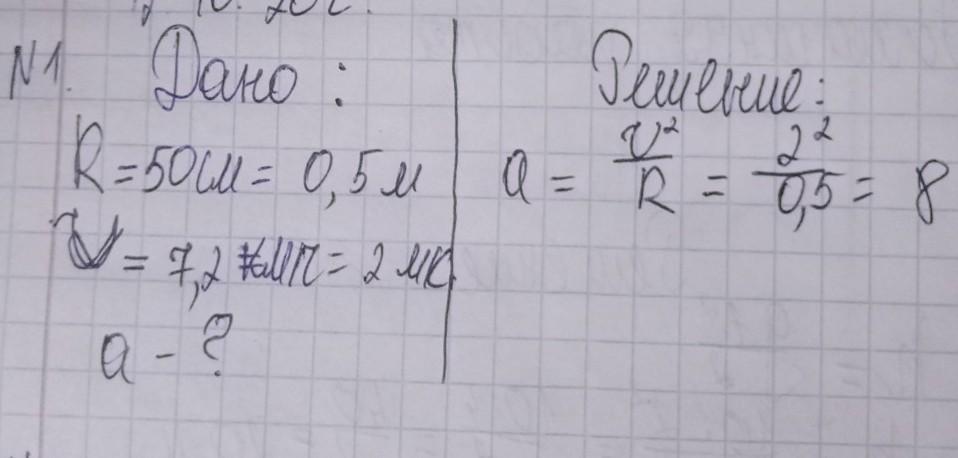 N1. Дано:
R = 50 см = 0,5 м
v = 7,2 кмч = 2 мс
a - ?
Решение:
a = v²/R = 2²/0,5 = 8